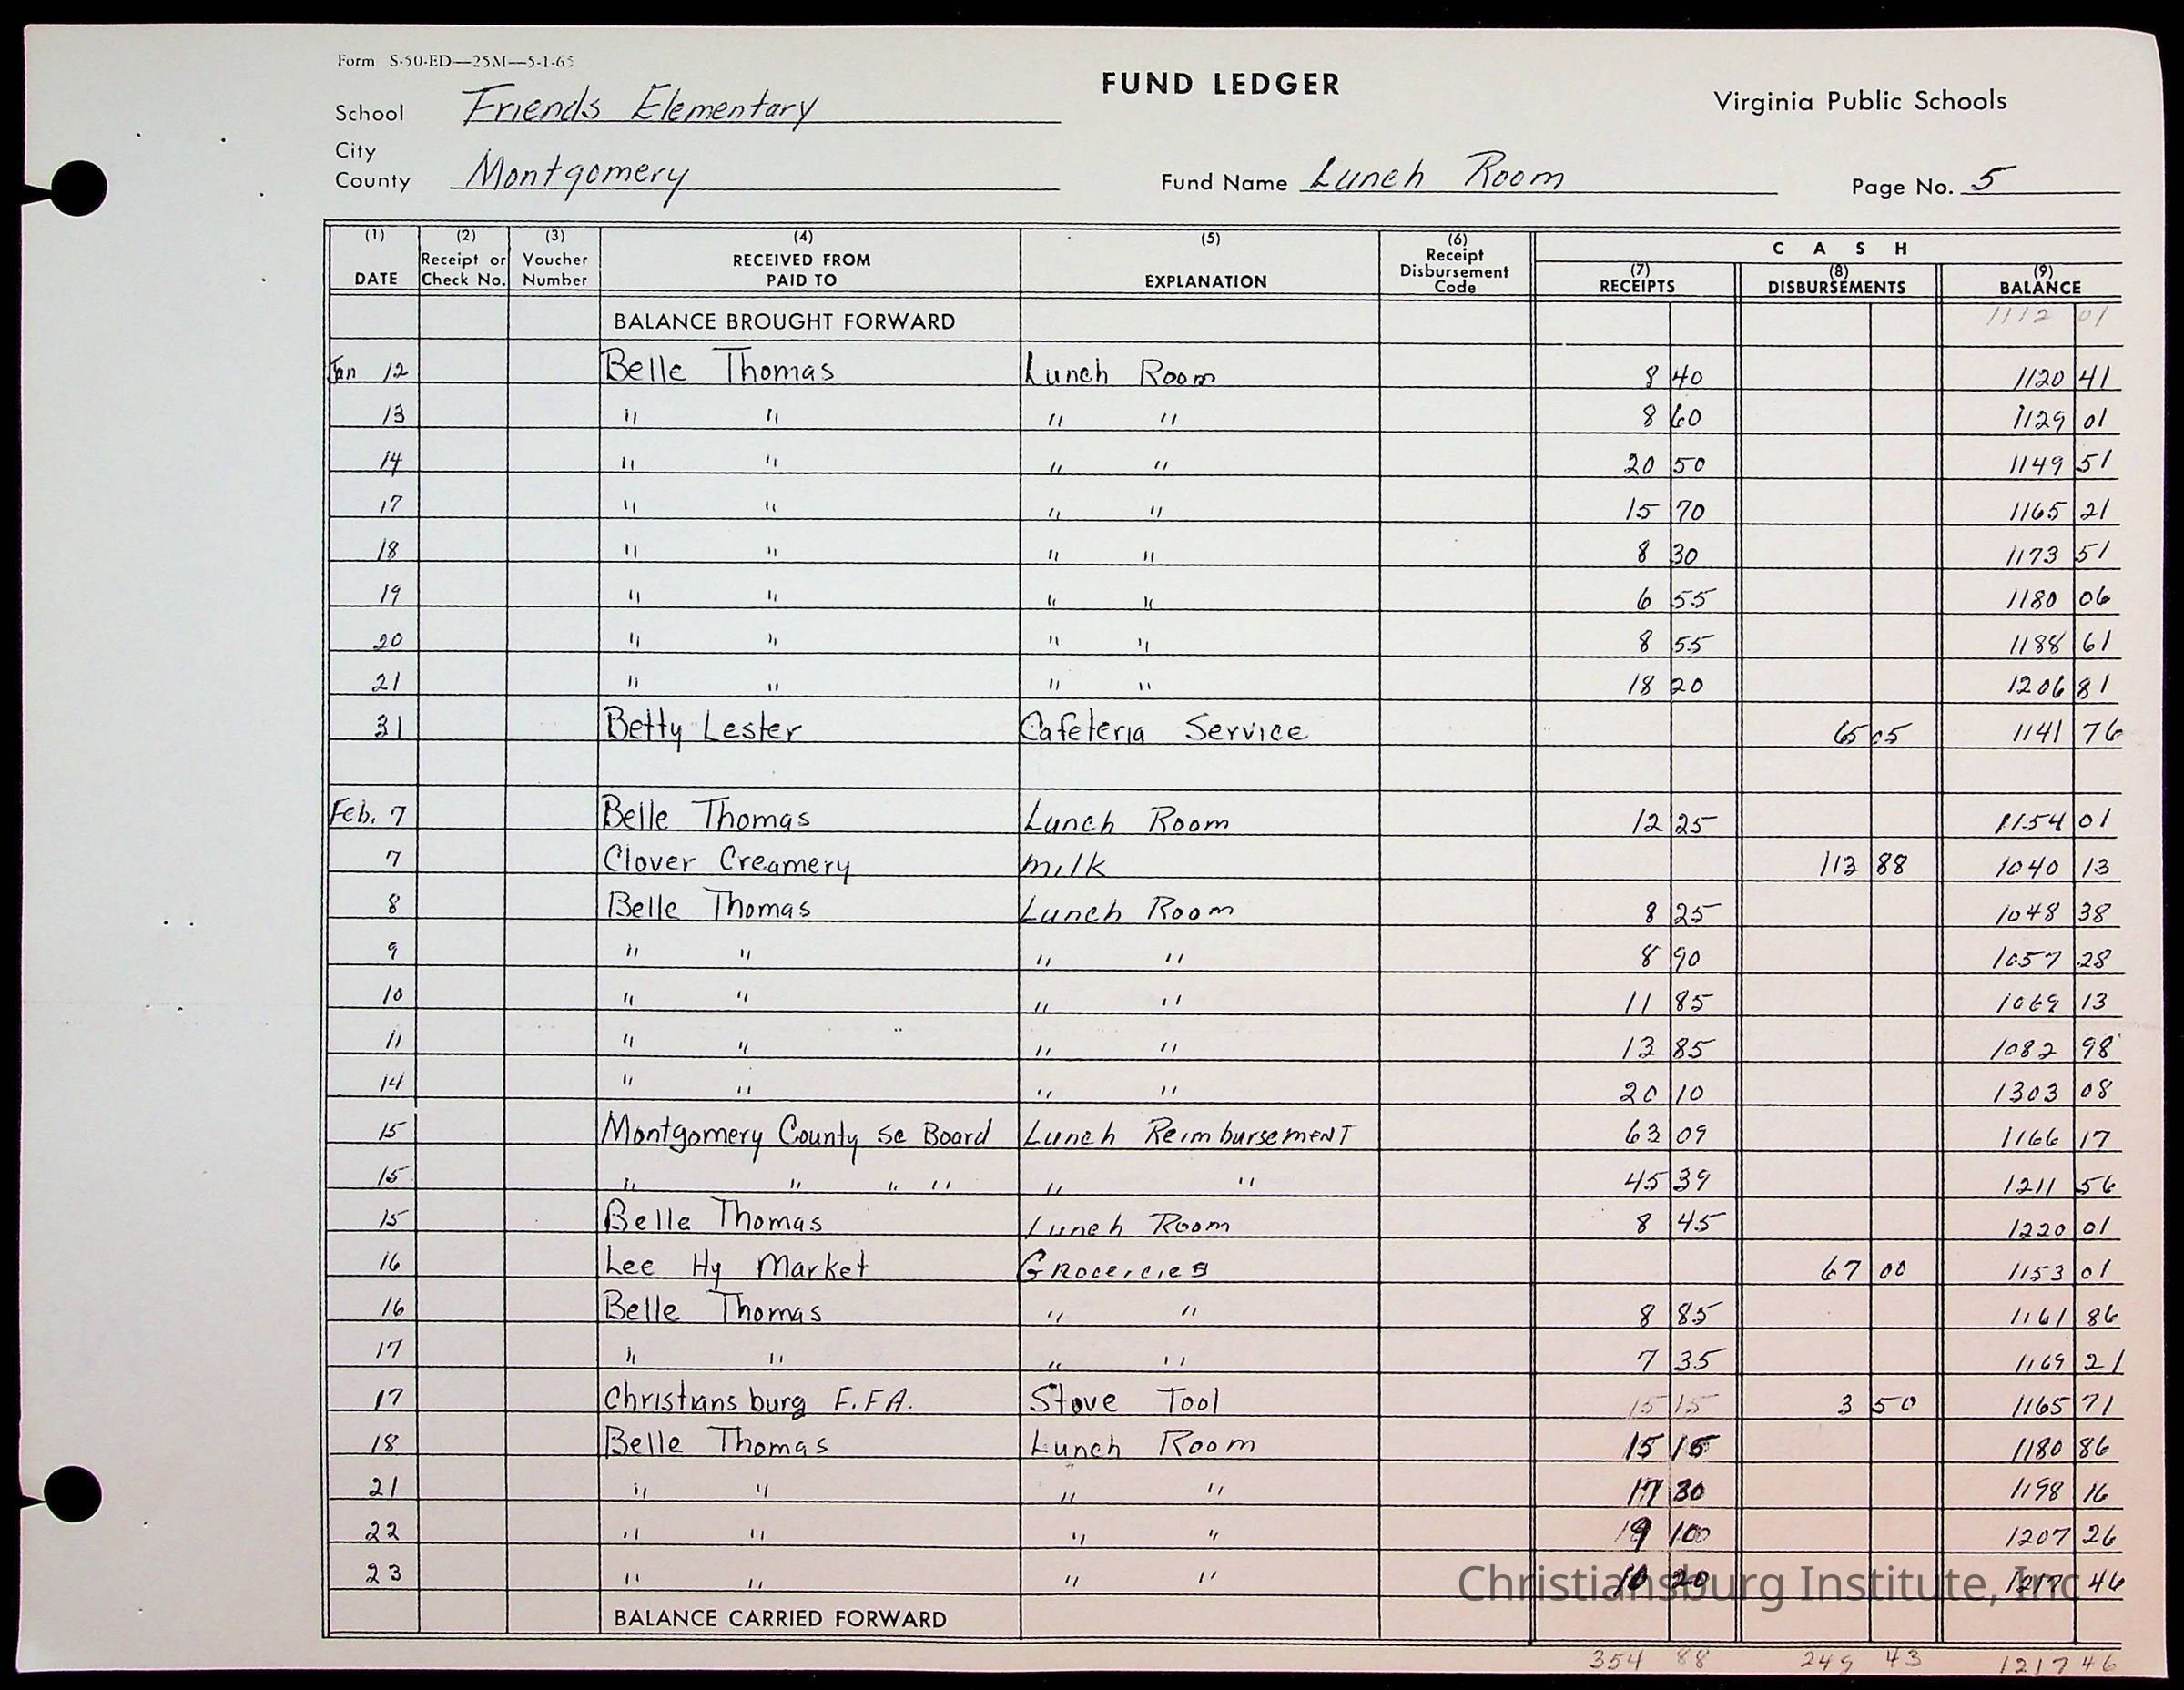 Form S-50-ED—25M—5-1-65
FUND LEDGER
Virginia Public Schools
School Friends Elementary
City
County Montgomery
Fund Name Lunch Room
Page No. 5
(1) (2) (3) (4) (5) (6) C A S H
DATE Receipt or Check No. Voucher Number RECEIVED FROM PAID TO EXPLANATION Receipt Disbursement Code (7) RECEIPTS (8) DISBURSEMENTS (9) BALANCE
BALANCE BROUGHT FORWARD 1112 01
Jan 12 Belle Thomas Lunch Room 8 40 1120 41
13 " " " " 8 60 1129 01
14 " " " " 20 50 1149 51
17 " " " " 15 70 1165 21
18 " " " " 8 30 1173 51
19 " " " " 6 55 1180 06
20 " " " " 8 55 1188 61
21 " " " " 18 20 1206 81
31 Betty Lester Cafeteria Service 65 05 1141 76
Feb. 7 Belle Thomas Lunch Room 12 25 1154 01
7 Clover Creamery milk 113 88 1040 13
8 Belle Thomas Lunch Room 8 25 1048 38
9 " " " " 8 90 1057 28
10 " " " " 11 85 1069 13
11 " " " " 13 85 1082 98
14 " " " " 20 10 1303 08
15 Montgomery County Sc Board Lunch Reimbursement 63 09 1166 17
15 " " " " " " 45 39 1211 56
15 Belle Thomas Lunch Room 8 45 1220 01
16 Lee Hy Market Groceries 67 00 1153 01
16 Belle Thomas " " 8 85 1161 86
17 " " " " 7 35 1169 21
17 Christiansburg F.FA. Stove Tool 15 15 3 50 1165 71
18 Belle Thomas Lunch Room 15 15 1180 86
21 " " " " 17 30 1198 16
22 " " " " 9 1207 26
23 " " " " 10 20 1217 46
BALANCE CARRIED FORWARD
354 88 249 43 1217 46
Christiansburg Institute, Inc